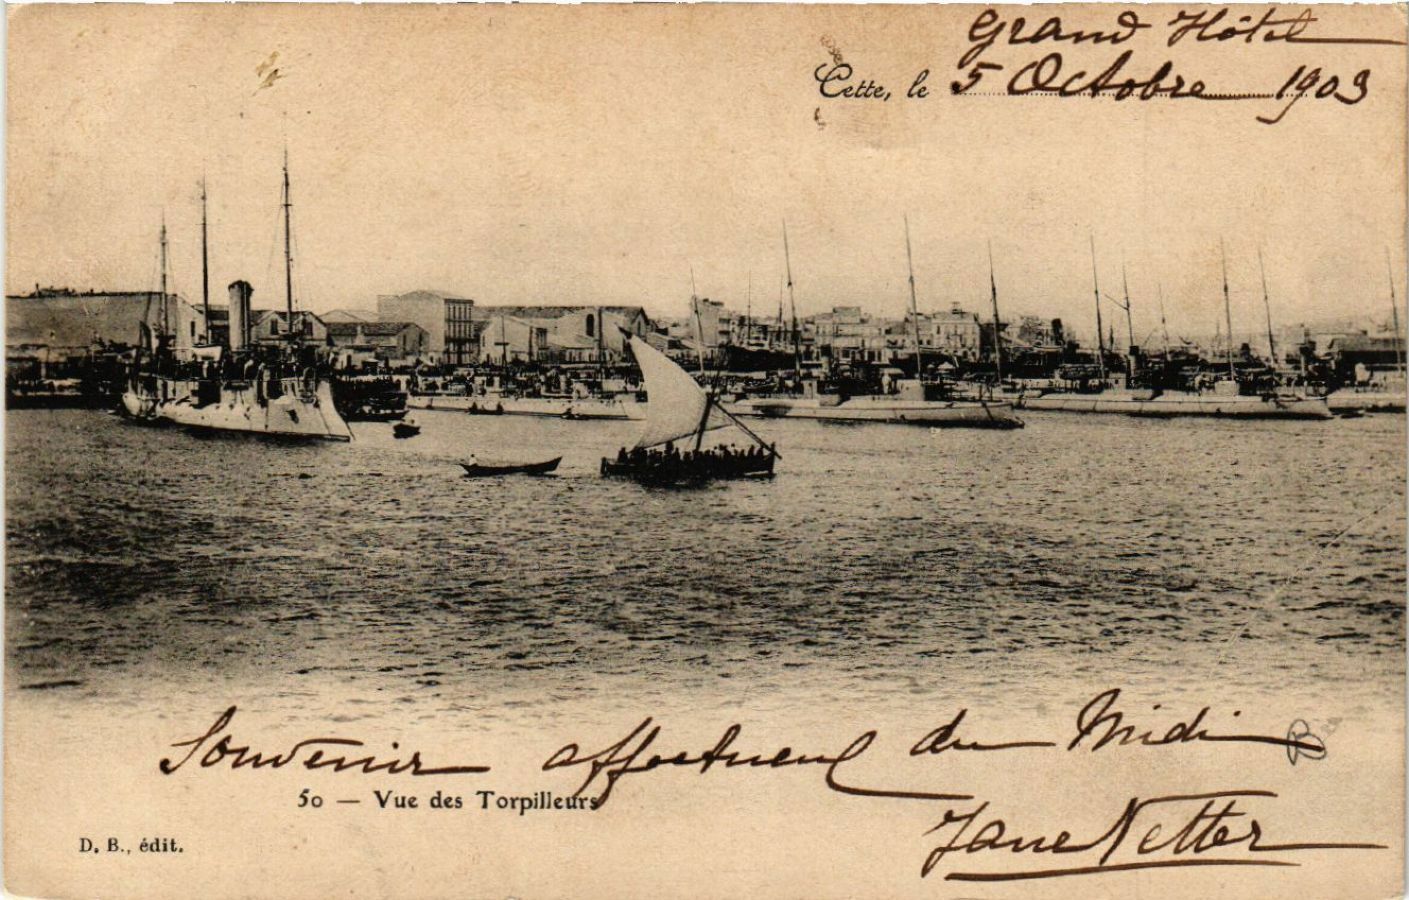 Grand Hôtel
Cette, le 5 Octobre 1903
Souvenir affectueux du Midi
50 — Vue des Torpilleurs
Jane Netter
D. B., édit.